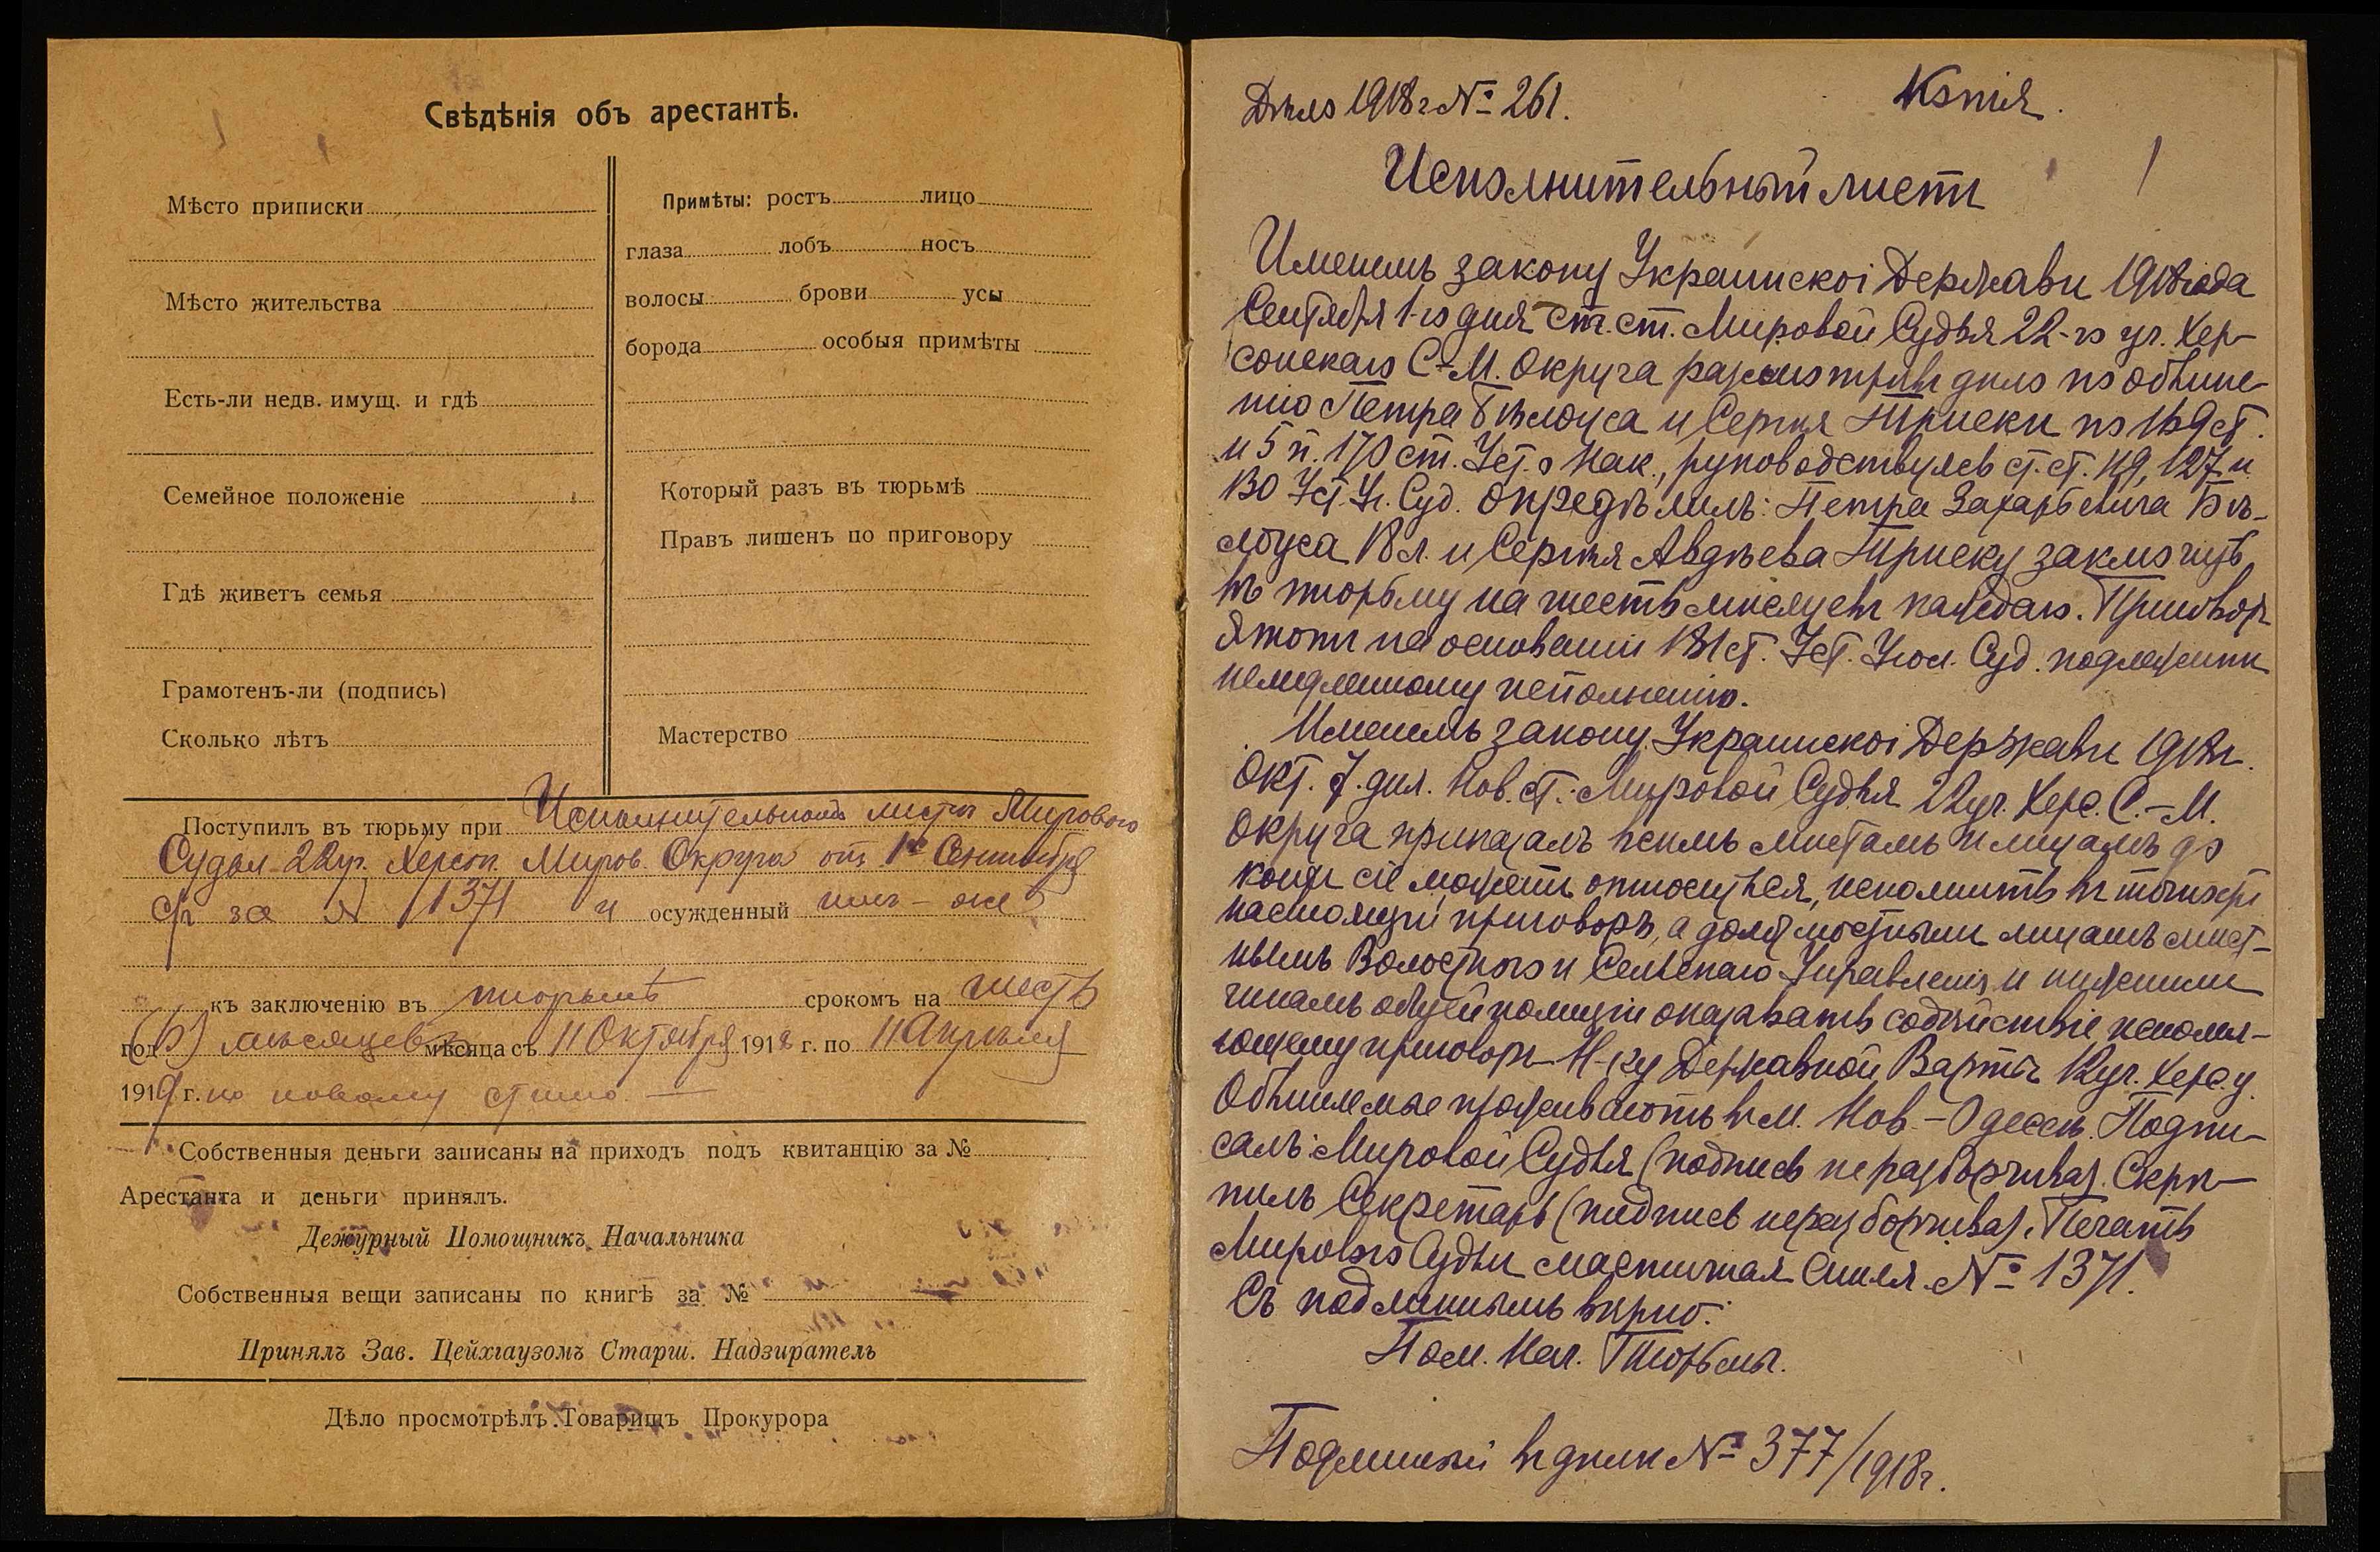 Свѣдѣнія объ арестантѣ.
Мѣсто приписки
Мѣсто жительства
Есть-ли недв. имущ. и гдѣ
Семейное положеніе
Гдѣ живетъ семья
Грамотенъ-ли (подпись)
Сколько лѣтъ
Примѣты: ростъ лицо
глаза лобъ носъ
волосы брови усы
борода особыя примѣты
Который разъ въ тюрьмѣ
Правъ лишенъ по приговору
Мастерство
Поступилъ въ тюрьму при Исполнительномъ листѣ Мирового
Судьи 22 уч. Херсон. Миров. Округа отъ 1го Сентября
с/г за № 1371 и осужденный имъ-же
къ заключенію въ тюрьмѣ срокомъ на шесть
год (6) мѣсяцевъ мѣсяца съ 11 Октября 1918 г. по 11 Апрѣля
1919 г. по новому стилю. —
Собственныя деньги записаны на приходъ подъ квитанцію за №
Арестанта и деньги принялъ.
Дежурный Помощникъ Начальника
Собственныя вещи записаны по книгѣ за №
Принялъ Зав. Цейхгаузомъ Старш. Надзиратель
Дѣло просмотрѣлъ Товарищъ Прокурора
Дѣло 1918 г № 261. Копія.
Исполнительный листъ
Именемъ закону Украинскоі Державы 1918 года
Сентября 1-го дня ст. ст. Мировой Судья 22-го уч. Хер-
сонскаго С.-М. Округа разсмотрѣвъ дѣло по обвине-
нію Петра Бѣлоуса и Сергѣя Триски по 169 ст.
и 5 п. 170 ст. Уст. о Нак., руководствуясь ст. ст. 119, 127 и
130 Уст. Уг. Суд. опредѣлилъ: Петра Захарьевича Бѣ-
лоуса 18 л. и Сергѣя Авдѣева Триску заключить
въ тюрьму на шесть мѣсяцевъ каждаго. Приговоръ
этотъ на основаніи 181 ст. Уст. Угол. Суд. подлежитъ
немедленному исполненію.
Именемъ закону Украинскоі Державы 1918 г.
Окт. 7. дня. Нов. ст. Мировой Судья 22 уч. Херс. С.-М.
Округа приказалъ всѣмъ мѣстамъ и лицамъ до
коихъ сіе можетъ относиться, исполнить въ точности
настоящій приговоръ, а должностнымъ лицамъ мѣст-
нымъ Волостного и Сельскаго Управленія и нижнимъ
чинамъ общей полиціи оказывать содѣйствіе исполня-
ющему приговоръ Н-ку Державной Варты 12 уч. Херс. у.
Обвиняемые проживаютъ въ М. Нов.-Одессѣ. Подпи-
салъ: Мировой Судья (подпись неразборчива). Скрѣ-
пилъ Секретарь (подпись неразборчива). Печать
Мирового Судьи мастичная синяя. № 1371.
Съ подлиннымъ вѣрно:
Пом. Нач. Тюрьмы.
Подлинный въ дѣлѣ № 377/1918 г.